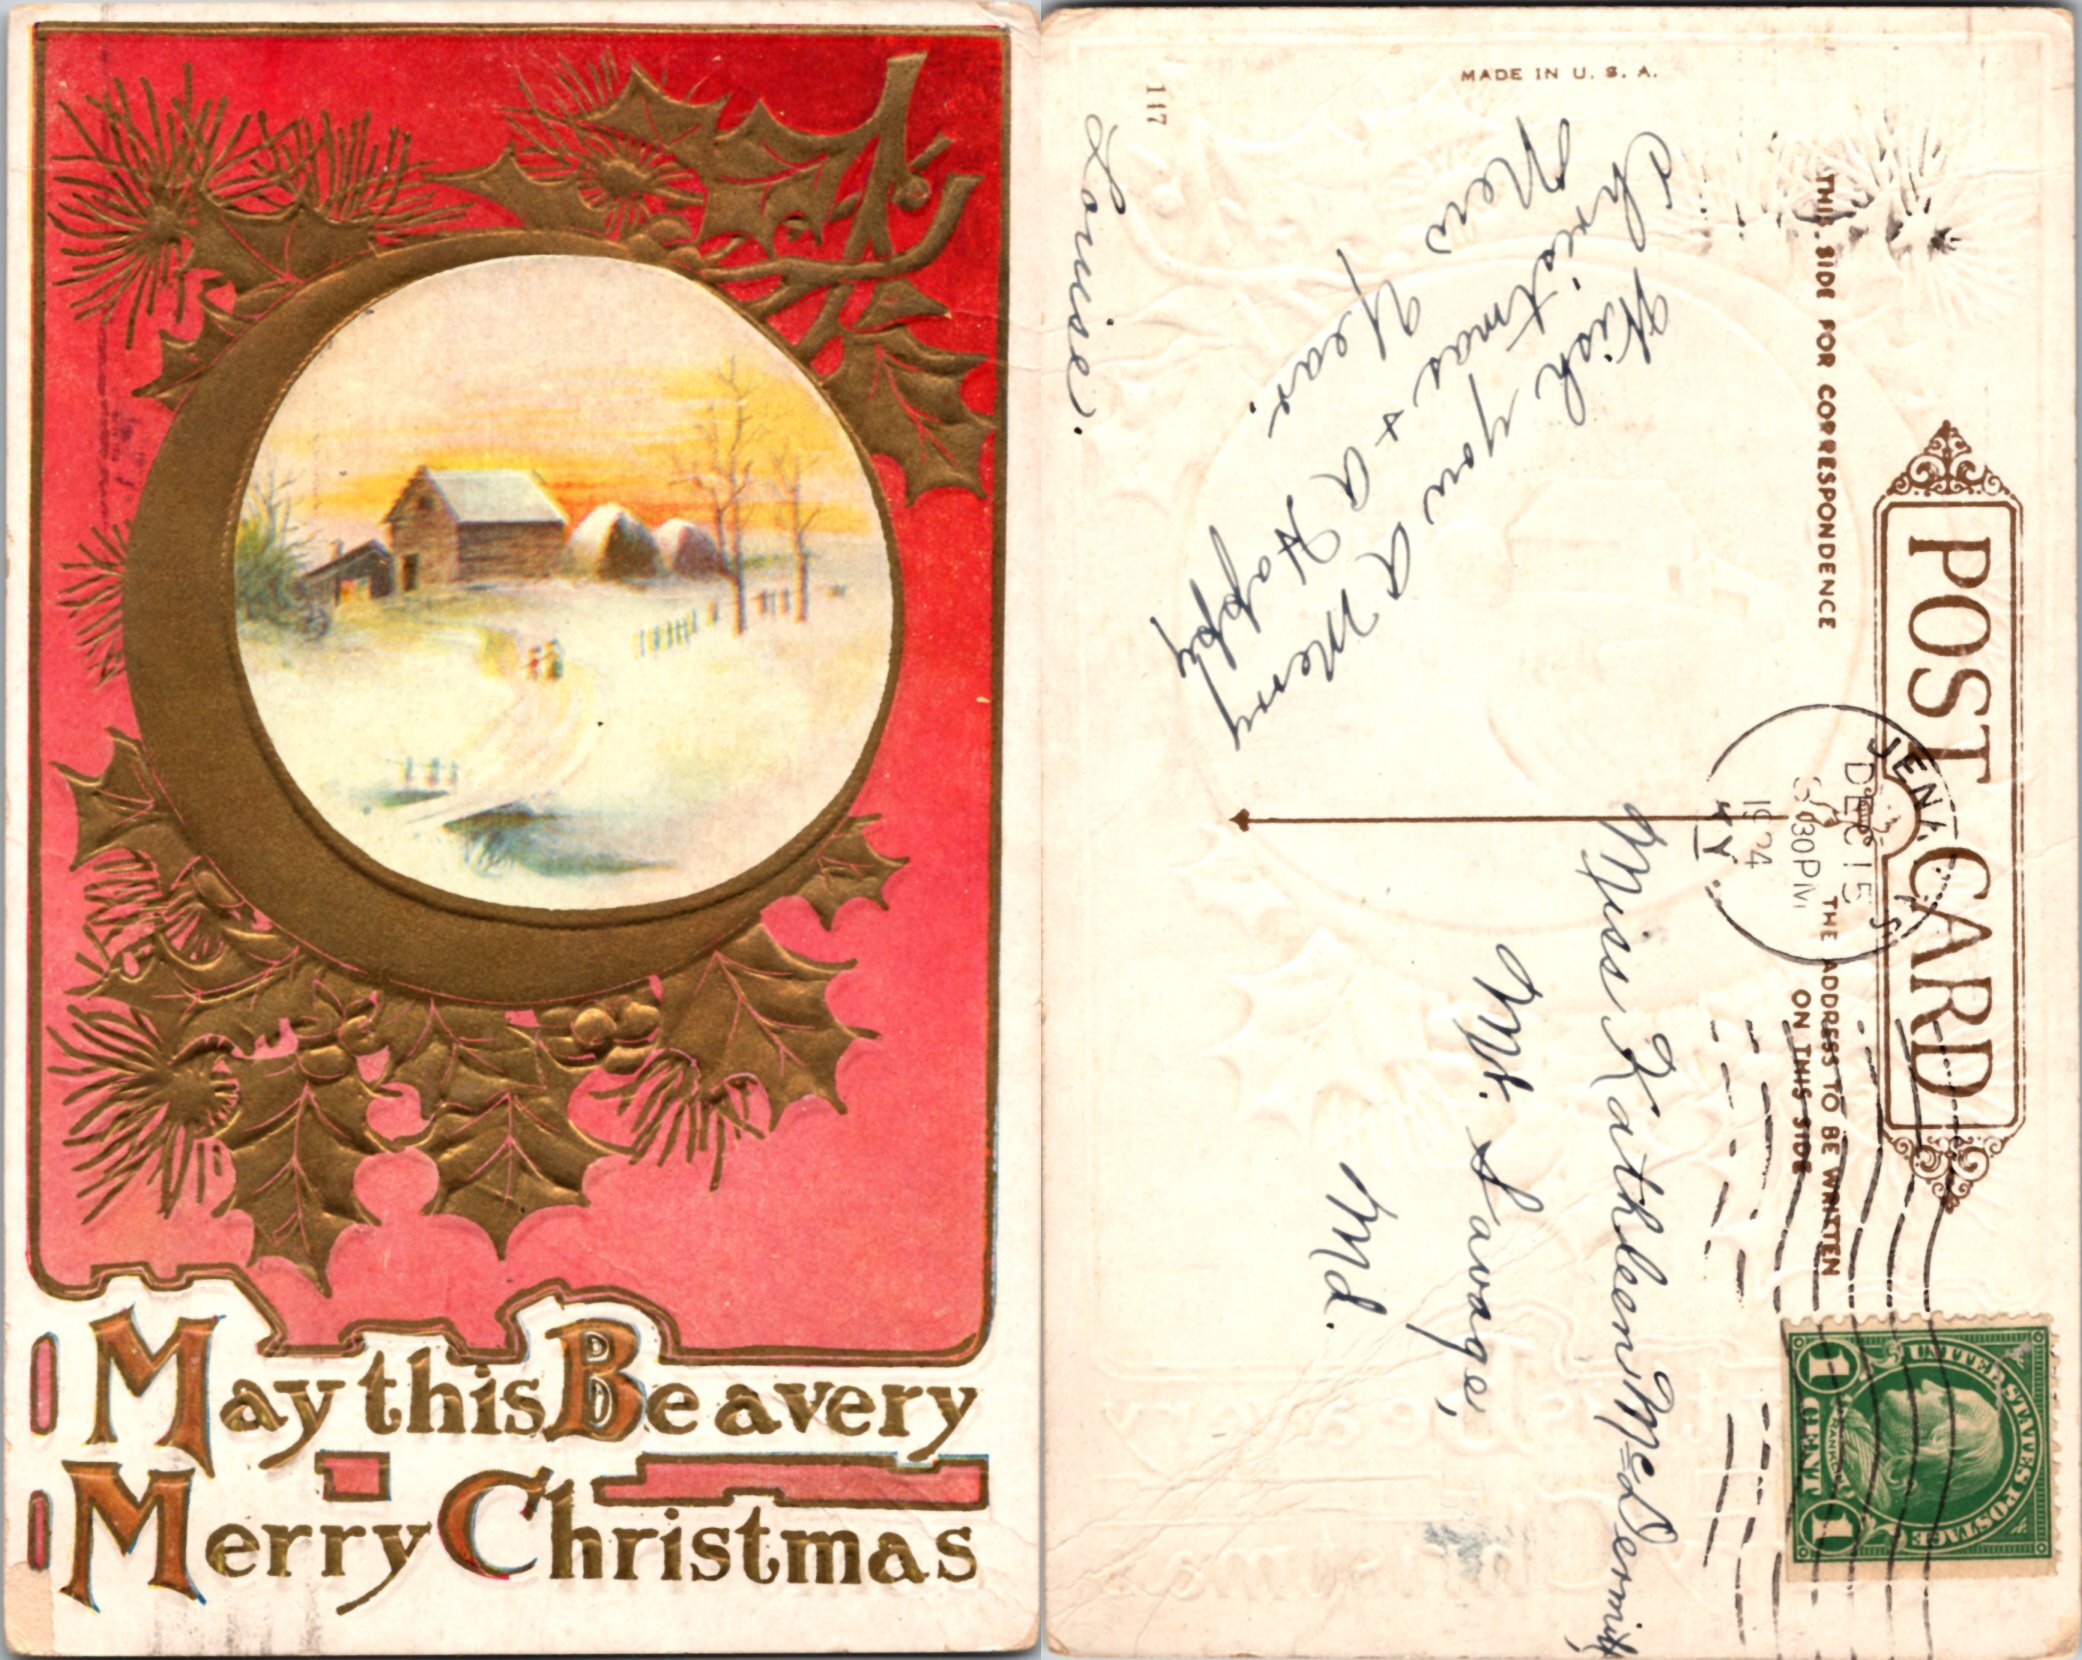 May this Be a very
Merry Christmas
MADE IN U. S. A.
117
THIS SIDE FOR CORRESPONDENCE
POST CARD
THE ADDRESS TO BE WRITTEN
ON THIS SIDE
Wish you a Merry
Christmas + a Happy
New Year.
Louise.
DEC 15
30 PM
1924
KY.
UNITED STATES POSTAGE
FRANKLIN
1 CENT 1
Miss Kathleen McDermitt,
Mt. Savage,
Md.